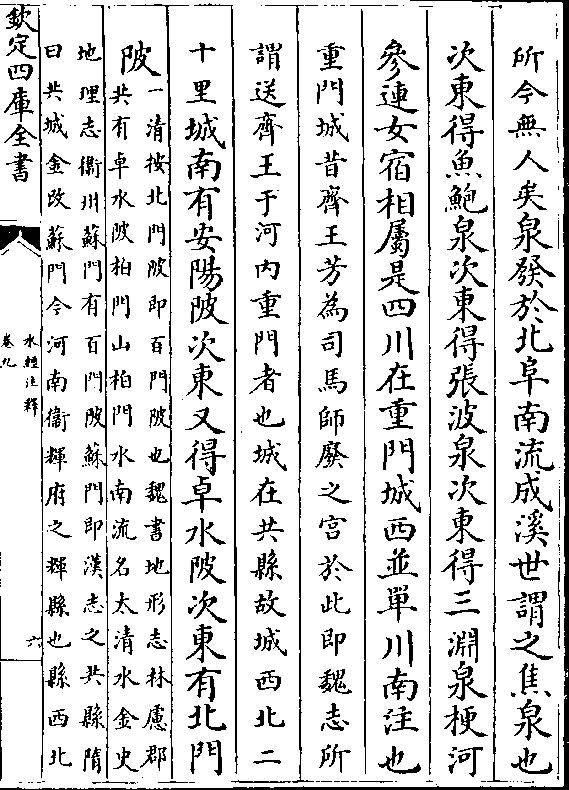 所今無人矣泉發於北阜南流成溪世謂之焦泉也
次東得魚鮑泉次東得張波泉次東得三淵泉梗河
參連女宿相屬是四川在重門城西並單川南注也
重門城昔齊王芳為司馬師廢之宮於此即魏志所
謂送齊王于河內重門者也城在共縣故城西北二
十里城南有安陽陂次東又得卓水陂次東有北門
陂一清按北門陂即百門陂也魏書地形志林慮郡
共有卓水陂柏門山柏門水南流名太清水金史
地理志衞州蘇門有百門陂蘇門即漢志之共縣隋
曰共城金改蘇門今河南衞輝府之輝縣也縣西北
欽定四庫全書
水經注釋
卷九
六